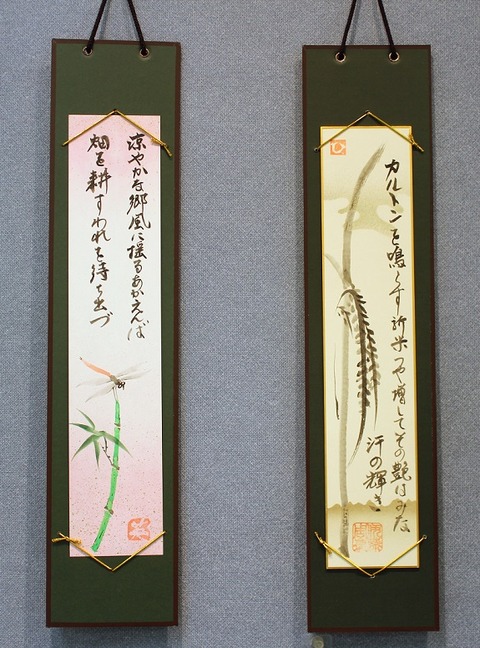 カルトンを鳴らす新米つや増してその艶はみな
汗の輝き
涼やかな郷風に揺るあかえんば
畑を耕すわれを待ち出づ